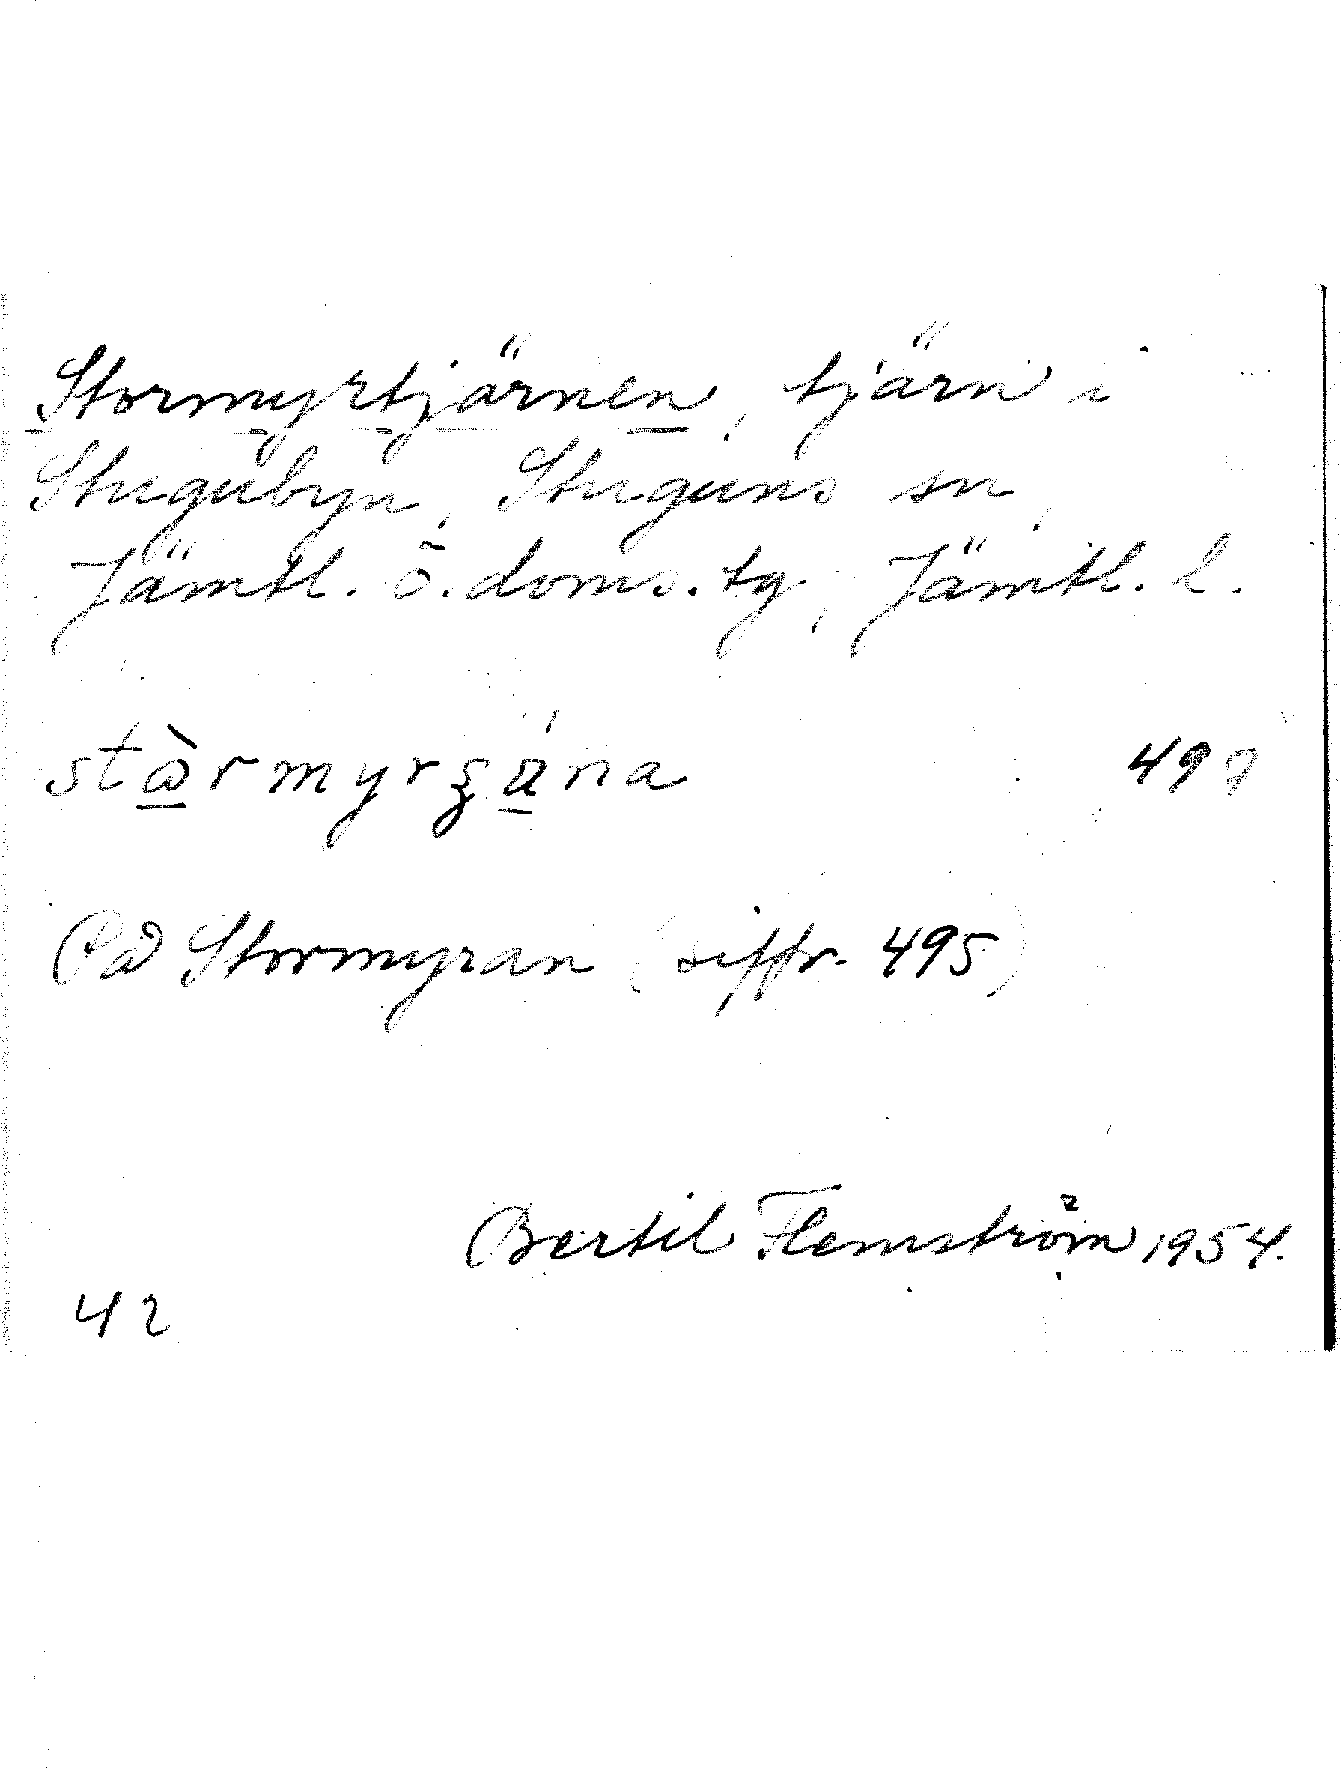 Stormyrtjärnen, tjärn i
Stugubyn, Stuguns sn,
Jämtl. ö. doms. tg, Jämtl. l.
497
På Stormyran (siffr. 495)
Bertil Flemström 1954.
42